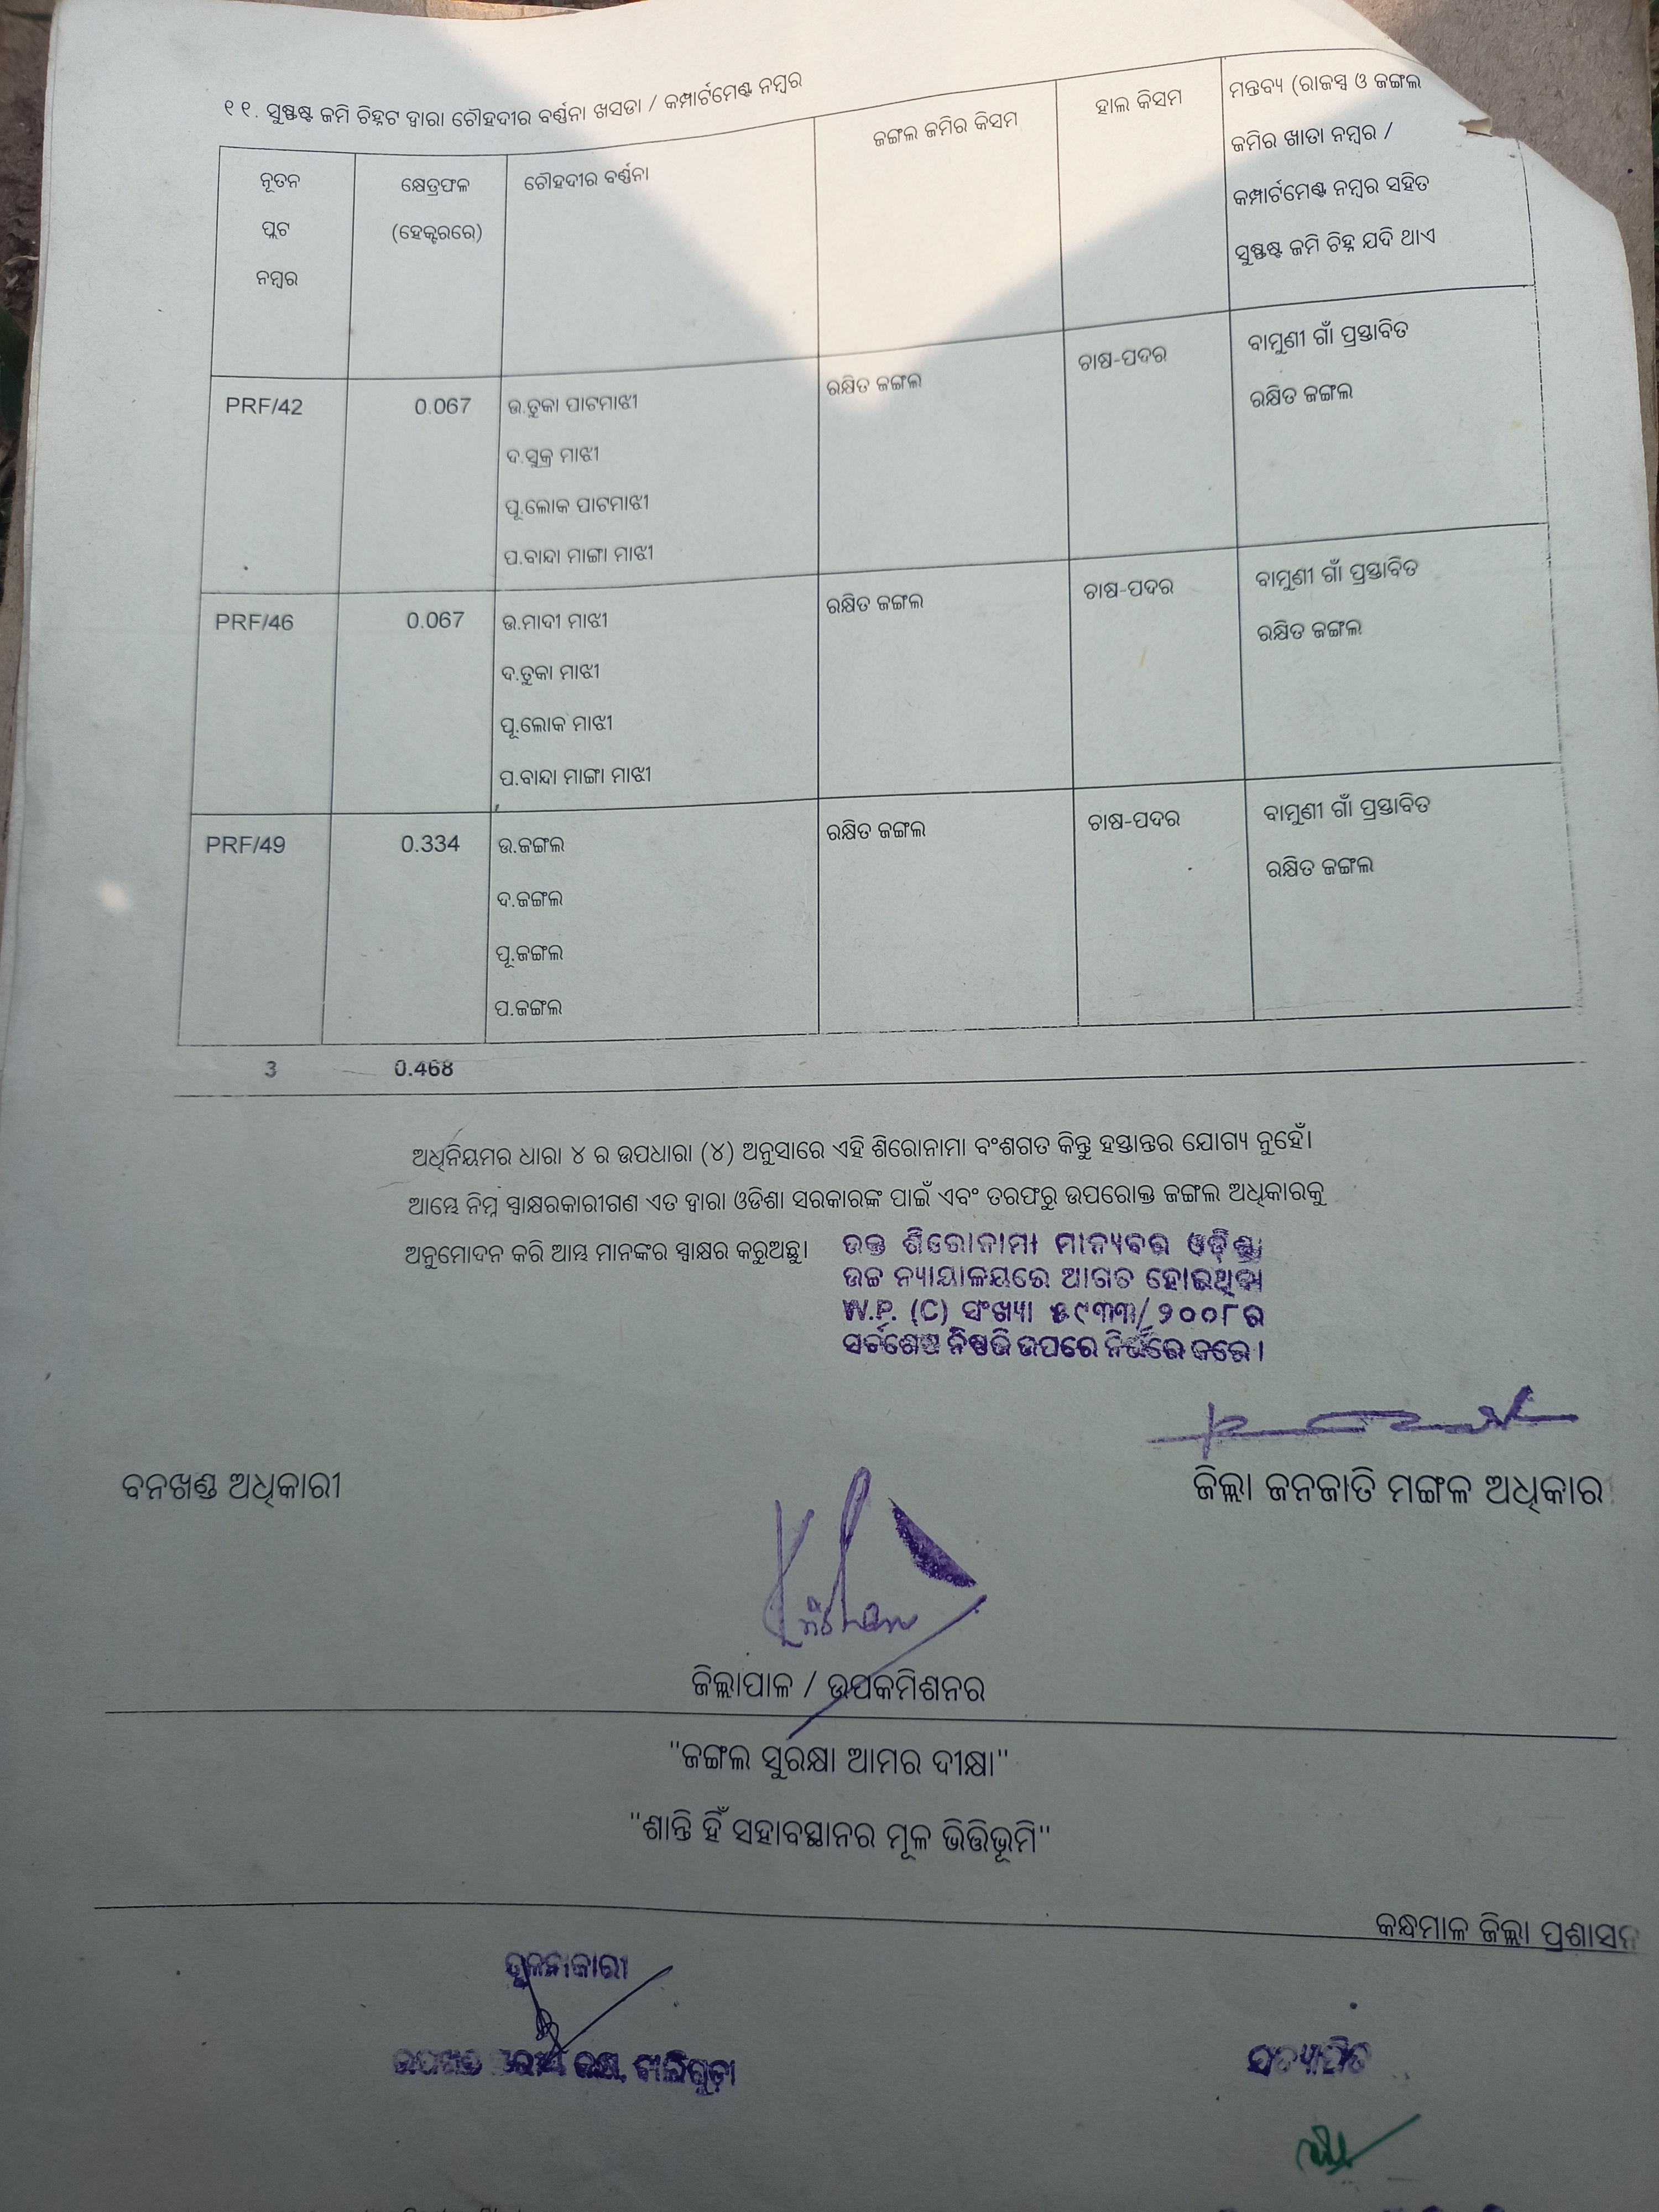 ୧୧. ସୁଷ୍ପଷ୍ଟ ଜମି ଚିହ୍ନଟ ଦ୍ୱାରା ଚୌହଦୀର ବର୍ଣ୍ଣନା ଖସଡା / କମ୍ପାର୍ଟମେଣ୍ଟ ନମ୍ବର
ନୂତନ ପ୍ଲଟ ନମ୍ବର
କ୍ଷେତ୍ରଫଳ (ହେକ୍ଟରରେ)
ଚୌହଦୀର ବର୍ଣ୍ଣନା
ଜଙ୍ଗଲ ଜମିର କିସମ
ହାଲ କିସମ
ମନ୍ତବ୍ୟ (ରାଜସ୍ୱ ଓ ଜଙ୍ଗଲ
ଜମିର ଖାତା ନମ୍ବର /
କମ୍ପାର୍ଟମେଣ୍ଟ ନମ୍ବର ସହିତ
ସୁଷ୍ପଷ୍ଟ ଜମି ଚିହ୍ନ ଯଦି ଥାଏ
PRF/42 0.067 ଉ.ତୁକା ପାଟମାଝୀ ରକ୍ଷିତ ଜଙ୍ଗଲ ଚାଷ-ପଦର ବାମୁଣୀ ଗାଁ ପ୍ରସ୍ତାବିତ
ଦ.ସୁକ୍ର ମାଝୀ ରକ୍ଷିତ ଜଙ୍ଗଲ
ପୂ.ଲୋକ ପାଟମାଝୀ
ପ.ବାନ୍ଧା ମାଙ୍ଗା ମାଝୀ
PRF/46 0.067 ଉ.ମାଦୀ ମାଝୀ ରକ୍ଷିତ ଜଙ୍ଗଲ ଚାଷ-ପଦର ବାମୁଣୀ ଗାଁ ପ୍ରସ୍ତାବିତ
ଦ.ତୁକା ମାଝୀ ରକ୍ଷିତ ଜଙ୍ଗଲ
ପୂ.ଲୋକ ମାଝୀ
ପ.ବାନ୍ଧା ମାଙ୍ଗା ମାଝୀ
PRF/49 0.334 ଉ.ଜଙ୍ଗଲ ରକ୍ଷିତ ଜଙ୍ଗଲ ଚାଷ-ପଦର ବାମୁଣୀ ଗାଁ ପ୍ରସ୍ତାବିତ
ଦ.ଜଙ୍ଗଲ ରକ୍ଷିତ ଜଙ୍ଗଲ
ପୂ.ଜଙ୍ଗଲ
ପ.ଜଙ୍ଗଲ
3 0.468
ଅଧିନିୟମର ଧାରା ୪ ର ଉପଧାରା (୪) ଅନୁସାରେ ଏହି ଶିରୋନାମା ବଂଶଗତ କିନ୍ତୁ ହସ୍ତାନ୍ତର ଯୋଗ୍ୟ ନୁହେଁ।
ଆମ୍ଭେ ନିମ୍ନ ସ୍ୱାକ୍ଷରକାରୀଗଣ ଏତ ଦ୍ୱାରା ଓଡିଶା ସରକାରଙ୍କ ପାଇଁ ଏବଂ ତରଫରୁ ଉପରୋକ୍ତ ଜଙ୍ଗଲ ଅଧିକାରକୁ
ଅନୁମୋଦନ କରି ଆମ୍ଭ ମାନଙ୍କର ସ୍ୱାକ୍ଷର କରୁଅଛୁ।
ଉକ୍ତ ଶିରୋନାମା ମାନ୍ୟବର ଓଡ଼ିଶା
ଉଚ୍ଚ ନ୍ୟାୟାଳୟରେ ଆଗତ ହୋଇଥିବା
W.P. (C) ସଂଖ୍ୟା ୫୯୩୩/୨୦୦୮ର
ସର୍ବଶେଷ ନିଷ୍ପତ୍ତି ଉପରେ ନିର୍ଭରେ କରେ।
ବନଖଣ୍ଡ ଅଧିକାରୀ
ଜିଲ୍ଲା ଜନଜାତି ମଙ୍ଗଳ ଅଧିକାର
ଜିଲ୍ଲାପାଳ / ଉପକମିଶନର
"ଜଙ୍ଗଲ ସୁରକ୍ଷା ଆମର ଦୀକ୍ଷା"
"ଶାନ୍ତି ହିଁ ସହାବସ୍ଥାନର ମୂଳ ଭିତ୍ତିଭୂମି"
କନ୍ଧମାଳ ଜିଲ୍ଲା ପ୍ରଶାସନ
ତୁଳନାକାରୀ
ବାଲିଗୁଡ଼ା
ସତ୍ୟାପିତ